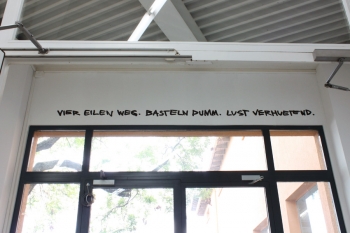 VIER EILEN WEG. BASTELN DUMM. LUST VERHUETEND.